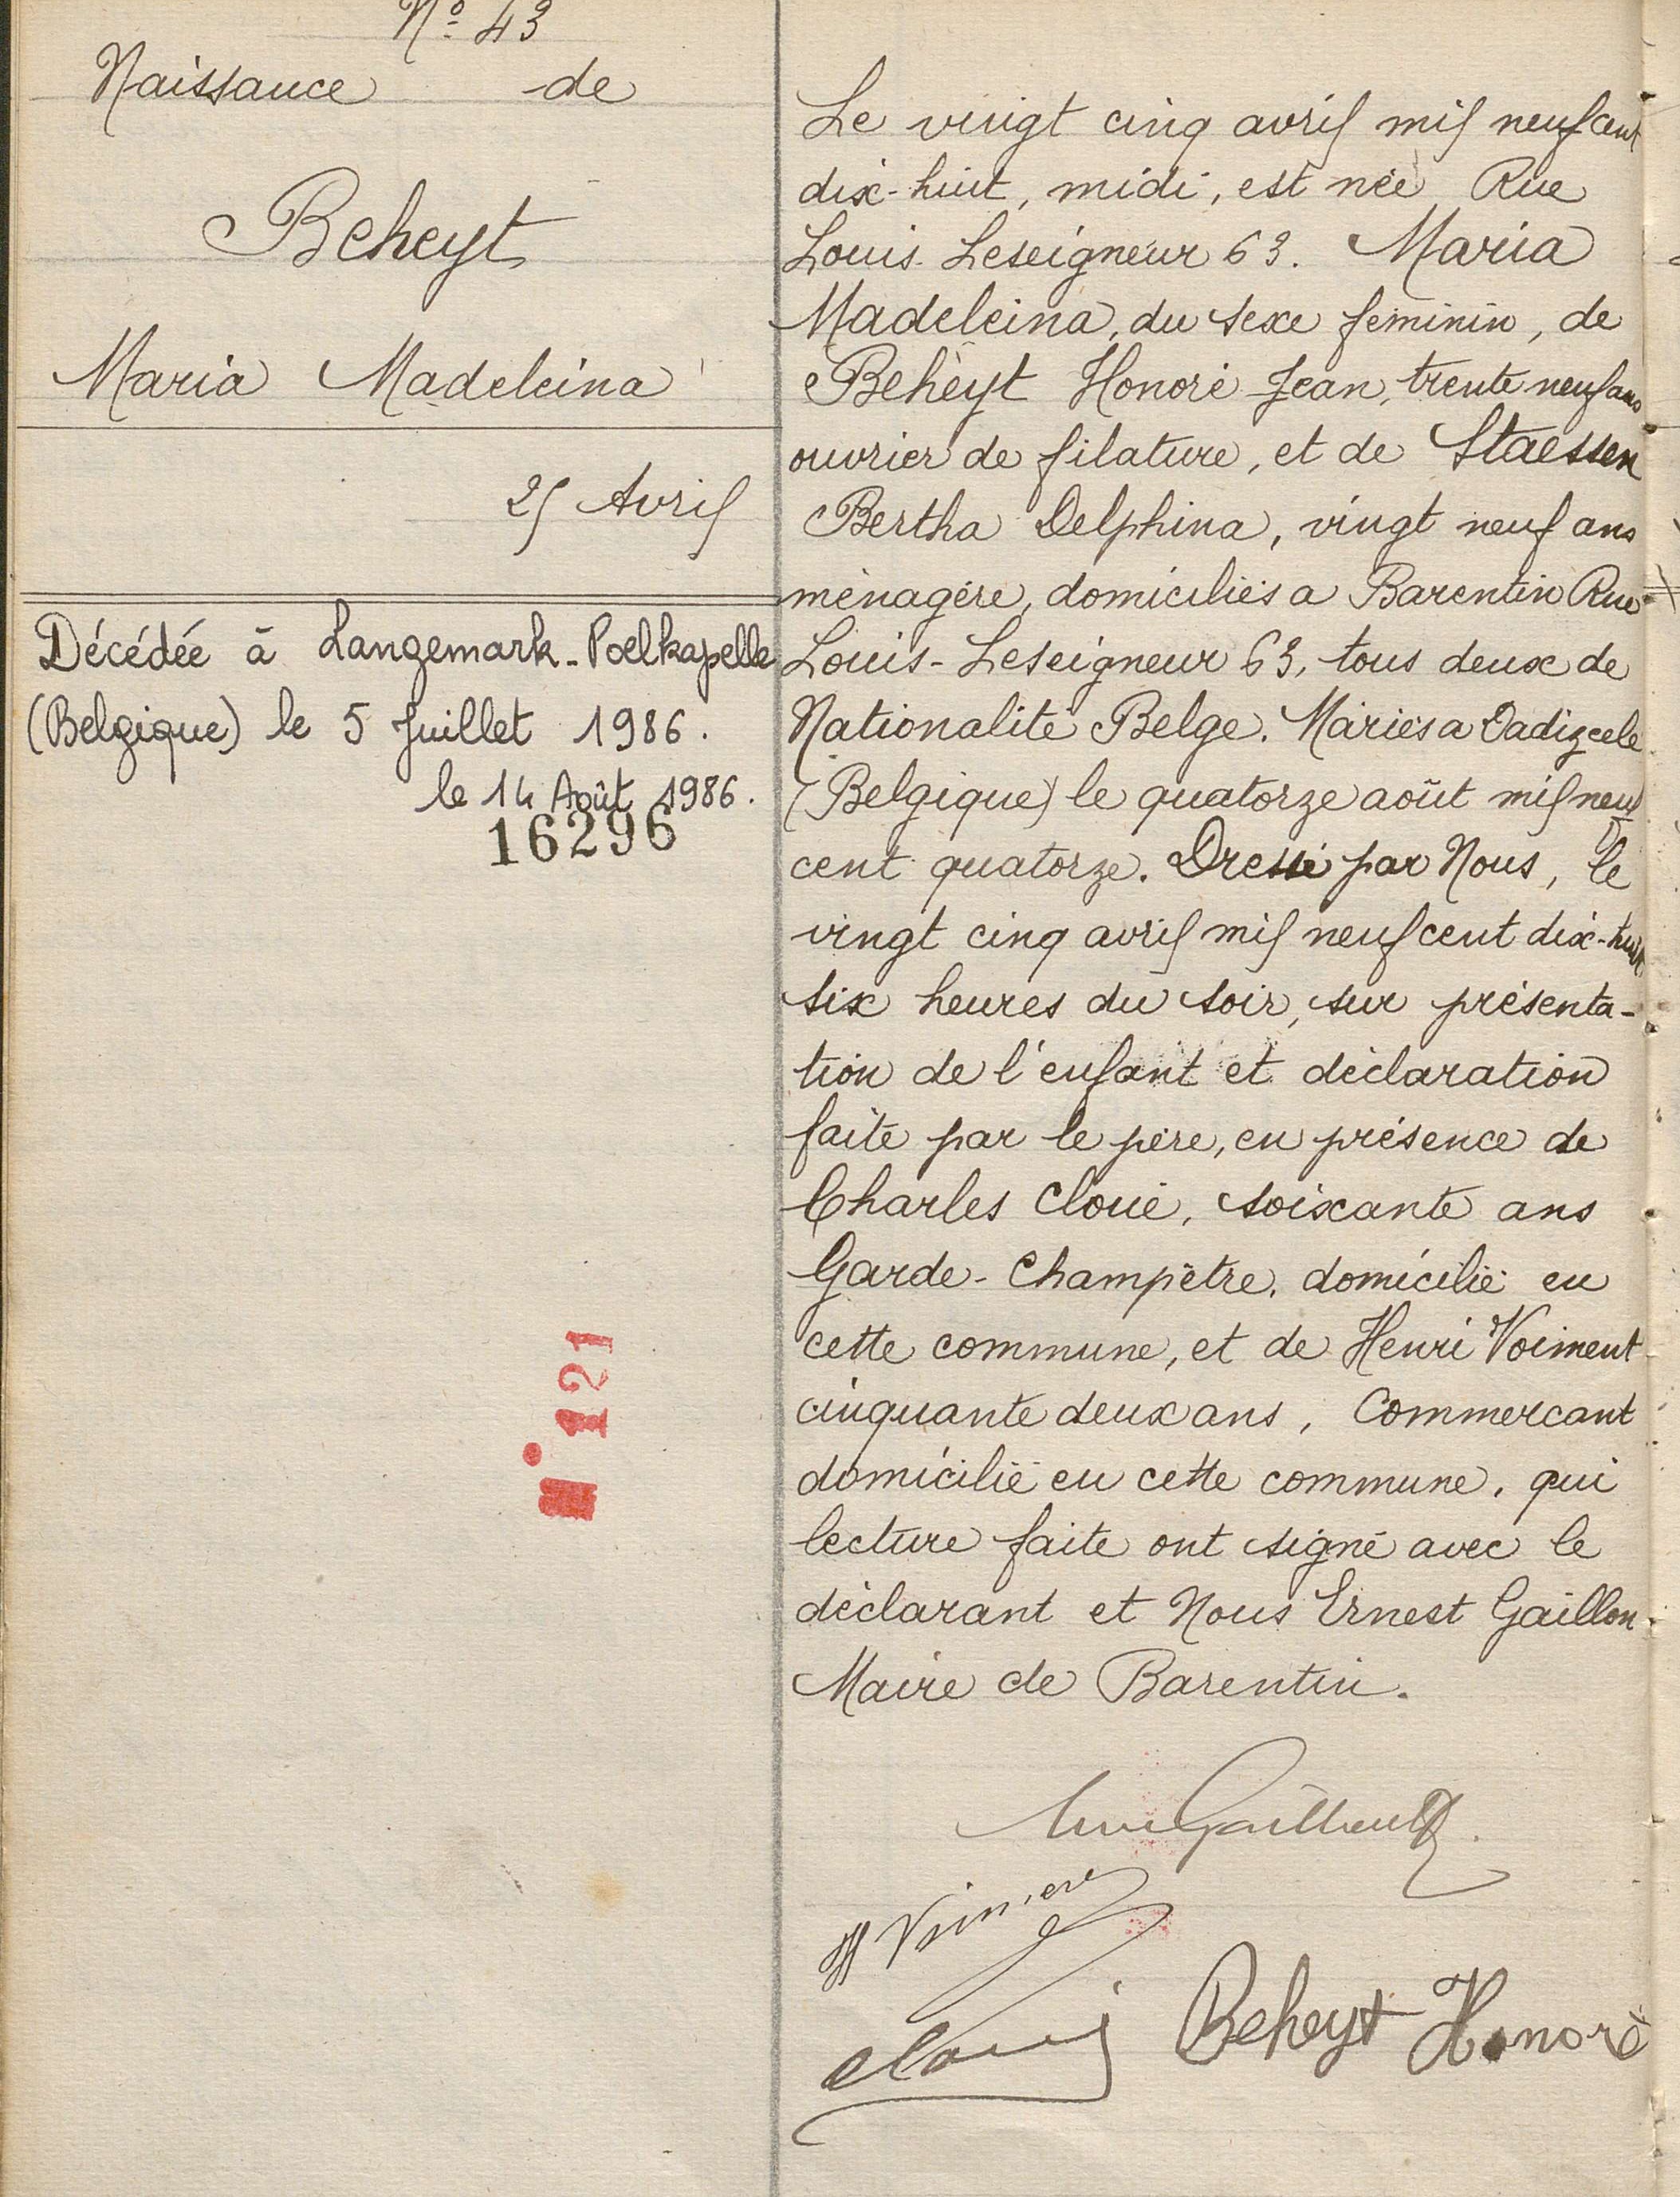 Nº 43
Naissance de
Beheyt
Maria Madeleina
25 Avril
Décédée à Langemark-Poelkapelle
(Belgique) le 5 Juillet 1986.
le 14 Août 1986.
16296
N° 121
Le vingt cinq avril mil neuf cent
dix-huit, midi, est née Rue
Louis Leseigneur 63. Maria
Madeleina, du sexe féminin, de
Beheyt Honoré Jean, trente neuf ans
ouvrier de filature, et de Staessen
Bertha Delphina, vingt neuf ans
ménagère, domiciliés a Barentin Rue
Louis-Leseigneur 63, tous deux de
Nationalité Belge. Mariés a Dadizeele
(Belgique) le quatorze août mil neuf
cent quatorze. Dressé par Nous, le
vingt cinq avril mil neuf cent dix-huit
six heures du soir, sur présenta-
tion de l'enfant et déclaration
faite par le père, en présence de
Charles Cloué, soixante ans
Garde-Champêtre, domicilié en
cette commune, et de Henri Voiment
cinquante deux ans, Commercant
domicilié en cette commune, qui
lecture faite ont signé avec le
déclarant et Nous Ernest Gaillon
Maire de Barentin.
Beheyt Honoré